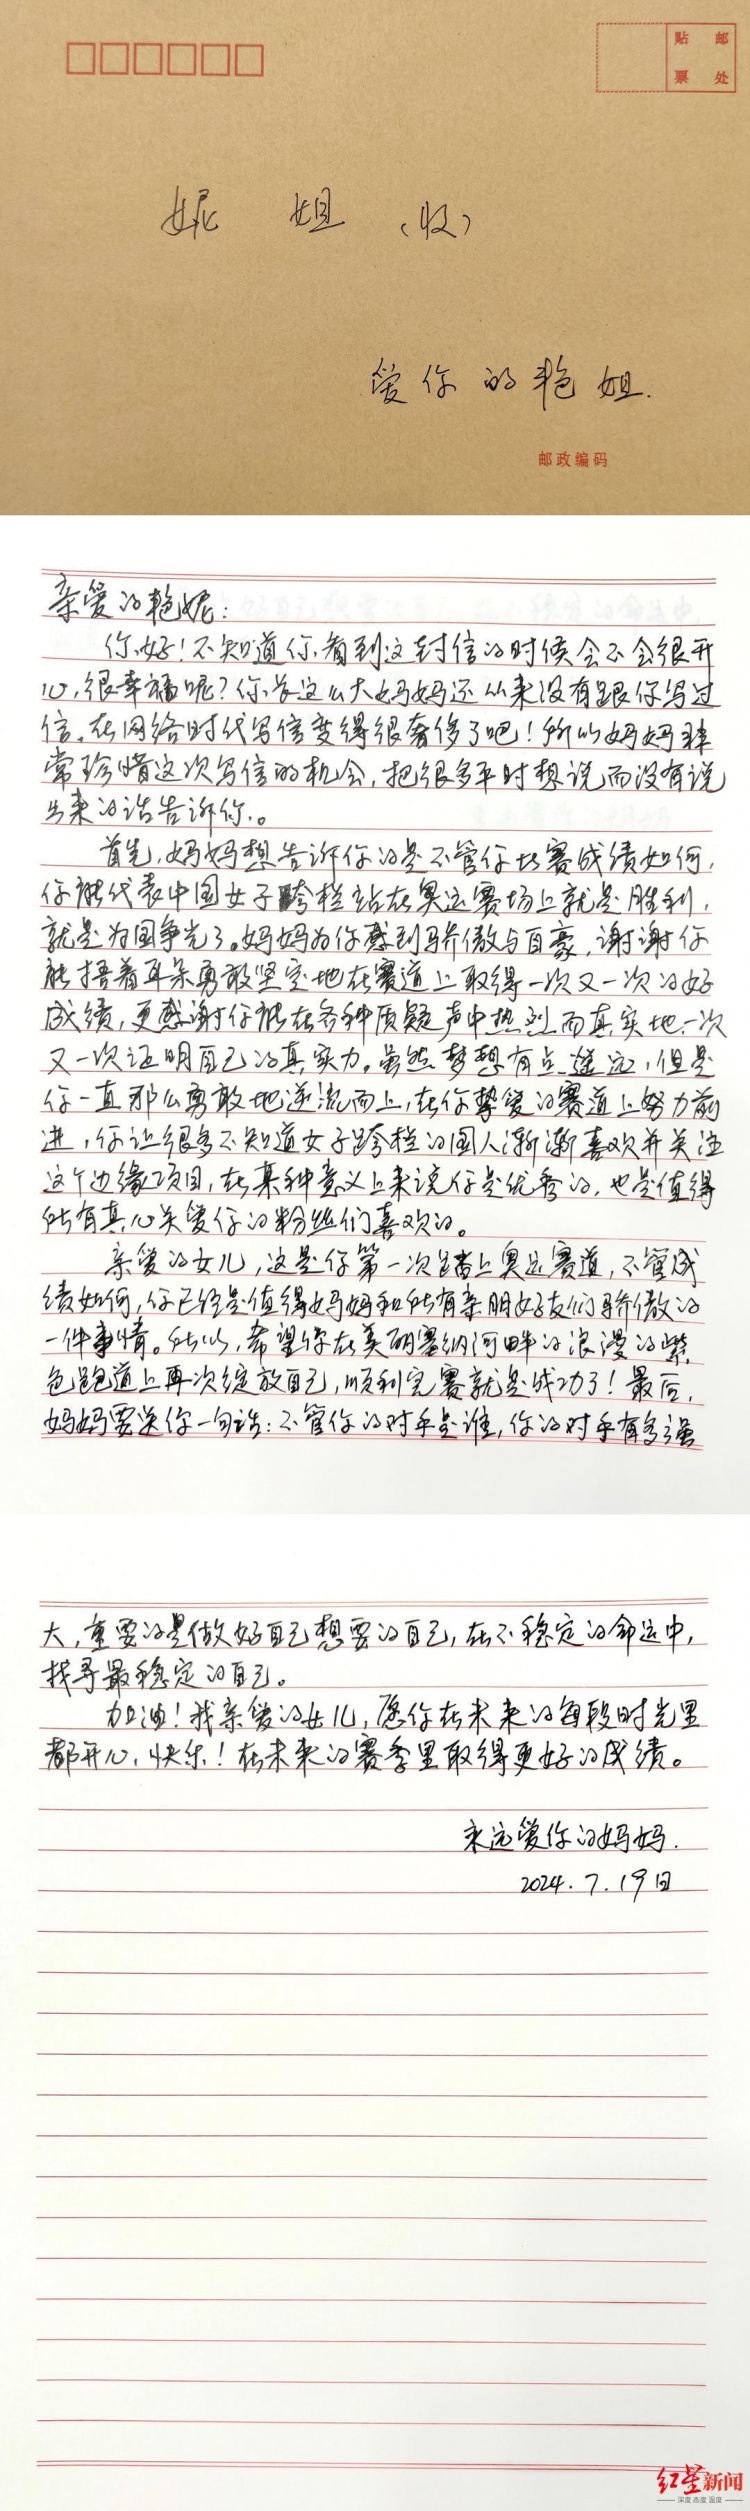 贴 邮
票 处
妮 姐（收）
爱你的艳姐.
邮政编码
亲爱的艳妮：
你好！不知道你看到这封信的时候会不会很开
心，很幸福呢？你长这么大妈妈还从来没有跟你写过
信。在网络时代写信变得很奢侈了吧！所以妈妈非
常珍惜这次写信的机会，把很多平时想说而没有说
出来的话告诉你。
首先，妈妈想告诉你的是不管你比赛成绩如何，
你能代表中国女子跨栏站在奥运赛场上就是胜利，
就是为国争光了。妈妈为你感到骄傲与自豪，谢谢你
能捂着耳朵勇敢坚定地在赛道上取得一次又一次的好
成绩，更感谢你能在各种质疑声中热烈而真实地一次
又一次证明自己的真实力。虽然梦想有点遥远，但是
你一直那么勇敢地逆流而上，在你挚爱的赛道上努力前
进，你让很多不知道女子跨栏的国人渐渐喜欢并关注
这个边缘项目，在某种意义上来说你是优秀的，也是值得
所有真心关爱你的粉丝们喜欢的。
亲爱的女儿，这是你第一次踏上奥运赛道，不管成
绩如何，你已经是值得妈妈和所有亲朋好友们骄傲的
一件事情。所以，希望你在美丽塞纳河畔的浪漫的紫
色跑道上再次绽放自己，顺利完赛就是成功了！最后，
妈妈要送你一句话：不管你的对手是谁，你的对手有多强
大，重要的是做好自己想要的自己，在不稳定的命运中，
找寻最稳定的自己。
加油！我亲爱的女儿，愿你在未来的每段时光里
都开心，快乐！在未来的赛季里取得更好的成绩。
永远爱你的妈妈.
2024.7.19日
红星新闻
深度 态度 温度